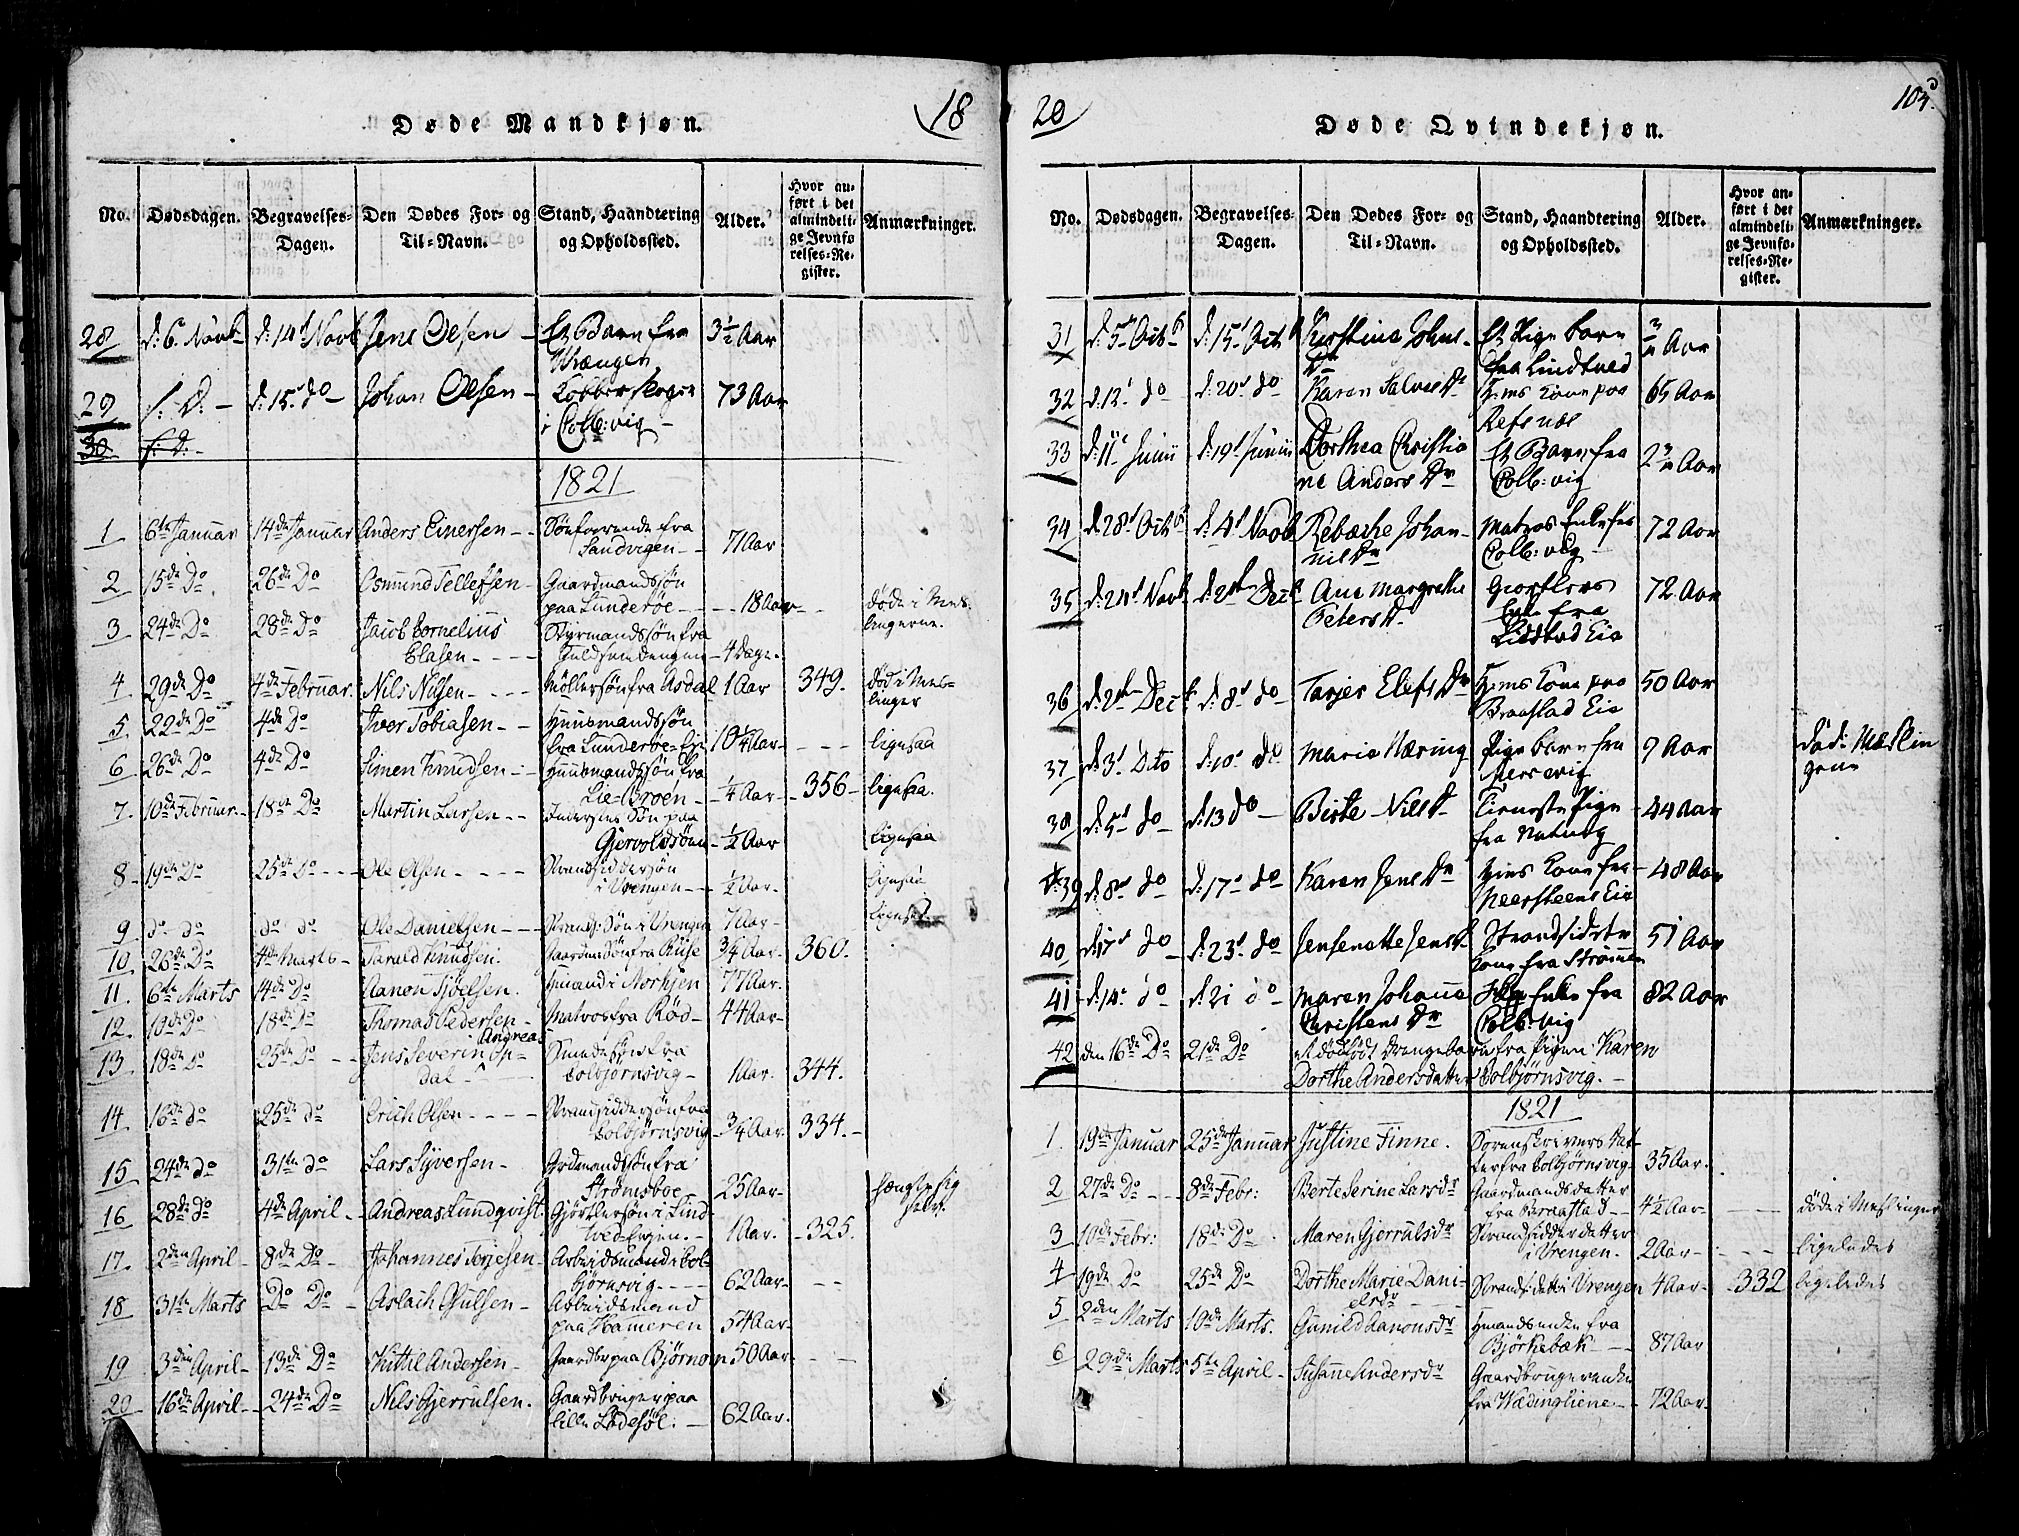 Døde Mandkjøn.
18
No.
Dødsdagen.
Begravelses-
Dagen.
Den Dødes For- og
Til-Navn.
Stand, Haandtering
og Opholdssted.
Alder.
Hvor an-
ført i det
almindeli-
ge Jevnfø-
relses-Re-
gister.
Anmærkninger.
28 d: 6. Novb d: 14d Novb Jens Olsen - Et Barn fra 3½ Aar
29 s: D: - d: 15. do Johan Olsen - 73 Aar
i Colb: vig -
30 s: D: -
1821
1 6te Januar 14de Januar Anders Einersen - - Sønfarende fra
Sandvigen - - 71 Aar
2 15de Do 26de Do Osmund Tellefsen - Gaardmandssøn
paa Lunderøe - - - 18 Aar døde i Mes-
lingerne.
3 24de Do 28de Do Jacob Cornelius Styrmandssøn fra
Clasen - - - - Guldsmedengen - 4 Dage.
4 29de Do 4de Februar. Nils Nilsen - - - - Møllersøn fra Asdal 1 Aar 349. død i Mes-
linger
5 22de Do 4de Do Iver Tobiasen - - Huusmandssøn
fra Lunderøe-Eje 10¼ Aar - - - - ligesaa
6 26de Do 4de Do Simen Knudsen - - Huusmandssøn fra
Lie-Broen - ¼ Aar - 356 - ligesaa.
7. 10de Februar. - 18de Do Martin Larsen - - Inderster Søn paa
Gjervoldsøen - ½ Aar ligesaa
8 - 19de Do 25de Do - - - Ole Olsen - - - - Strandsiddersøn
i Vrengen - - ½ Aar - ligesaa
9 do do do do Ole Danielsen - - - Strands: Søn i Vrengen 7 Aar - ligesaa.
10 26de Do 4de Marts - Tarald Knudsen. Gaardm. Søn fra Ruse ¾ Aar. 360.
11. 6te Marts 14de Do Aanon Tjøelsen. Hmand i Norkjen 77 Aar.
12. 10de Do 18de Do Thomas Pedersen - Matros fra Rød - 44 Aar -
13 18de Do 25de Do - - Jens Severin Andreas Op-
dal - Smedesøn fra
Colbjørnsvig - 1 Aar. 344.
14 16de do 25de do Erich Olsen - - - - Strandsiddersøn fra
Colbjørnsvig - ¾ Aar 334. -
15 24de do 31te do Lars Syversen - Grdmandssøn fra
Strømsboe 25 Aar - hængte sig
selv.
16 28de do 4de April - Andreas Lundqvist. Gjørtlersøn i Lind-
tved-Eyen. - 1 Aar. - 325.
17 2den April - 8de Do - Johannes Terjesen - Arbeidsmand i Col-
bjørnsvig - - - - 62 Aar - - -
18 31te Marts Do Do - Aslach Gjulsen - Arbeidsmand
paa Hameren 54 Aar -
19 3den April - 13de Do Kittil Andersen - Gaardbr. paa Bjørnom 50 Aar - - -
20 16de April - 24de Do Nils Gjerrulsen. Gaardbruger paa
lille Ladesøl. - 62 Aar.
20
Døde Qvindekjøn.
No.
Dødsdagen.
Begravelses-
Dagen.
Den Dødes For- og
Til-Navn.
Stand, Haandtering
og Opholdssted.
Alder.
Hvor an-
ført i det
almindeli-
ge Jevnfø-
relses-Re-
gister.
Anmærkninger.
31 d: 5d Octb d: 15d Octb Kirstine Johns- Et Pige barn Aar
Dr fra Lindtved
32 d: 12d do d: 20d do Karen Salves Dr Hms Kone paa 65 Aar
Refsnæs
33 d: 11d Junii d: 19d Junii Dorthea Christia Et Barn fra Aar
ne Anders Dr Colb: vig
34 d: 28d Octb d: 4d Novb Rebecke Johan- Matros Enke fra 72 Aar
nis Dr Colb: vig
35 d: 24d Novb d: 2d Decb Ane Margrethe 72 Aar
Peters Dr Enke fra
36 d: 2d Decb d: 8d do Tarjer Elefs Dr Hms Kone paa 50 Aar
Braastad Eie
37 d: 3d Dito d: 10d do Maria Næring Pige barn fra 9 Aar død i Mæslin
Mersevig gene
38 d: 5d do d: 13 do - Birte Nils Dr Tieneste Pige - 44 Aar
fra
39 d: 8d do d: 17d do Karen Jens Dr Hms Kone fra 48 Aar
Neersteens Eie
40 d: 17d do - d: 23d do Jensenatte Jens Dr Strandsidder 51 Aar
Kone fra Strømmen
41 d: 14d do d: 21 do Maren Johanne Enke fra 82 Aar
Christens Dr Colb: vig
42 den 16de Do 21de Do et dødfødt Drengebarn fra Pigen: Karen
Dorthe Andersdatter Colbjørnsvig. -
1821
1. 19de Januar 25de Januar Justine Finne. Sorenskrivers Dat-
ter fra Colbjørnsvig. 35 Aar.
2 27de Do - - 8de Febr: Berte Serine Larsdr Gaardmandsdatter
fra Braastad - - 4½ Aar - - - - døde i Meslinger
3 10de Febr: 18de Do Maren Gjerrulsdr Strandsidderdatter
i Vrengen - 2 Aar - - - - ligeledes
4 19de Do 25de Do Dorthe Marie Dani- Strandsdatter i Vrengen 4 Aar - 332 ligeledes
elsdr
5 2den Marts 10de Marts. Gunild Aanonsdr Hmandsenke fra
Bjørkebæk - - - 87 Aar
6 29de Marts 5te April - Susanne Andersdr Gaardbrugerenke
fra Wædingliene - - 72 Aar -